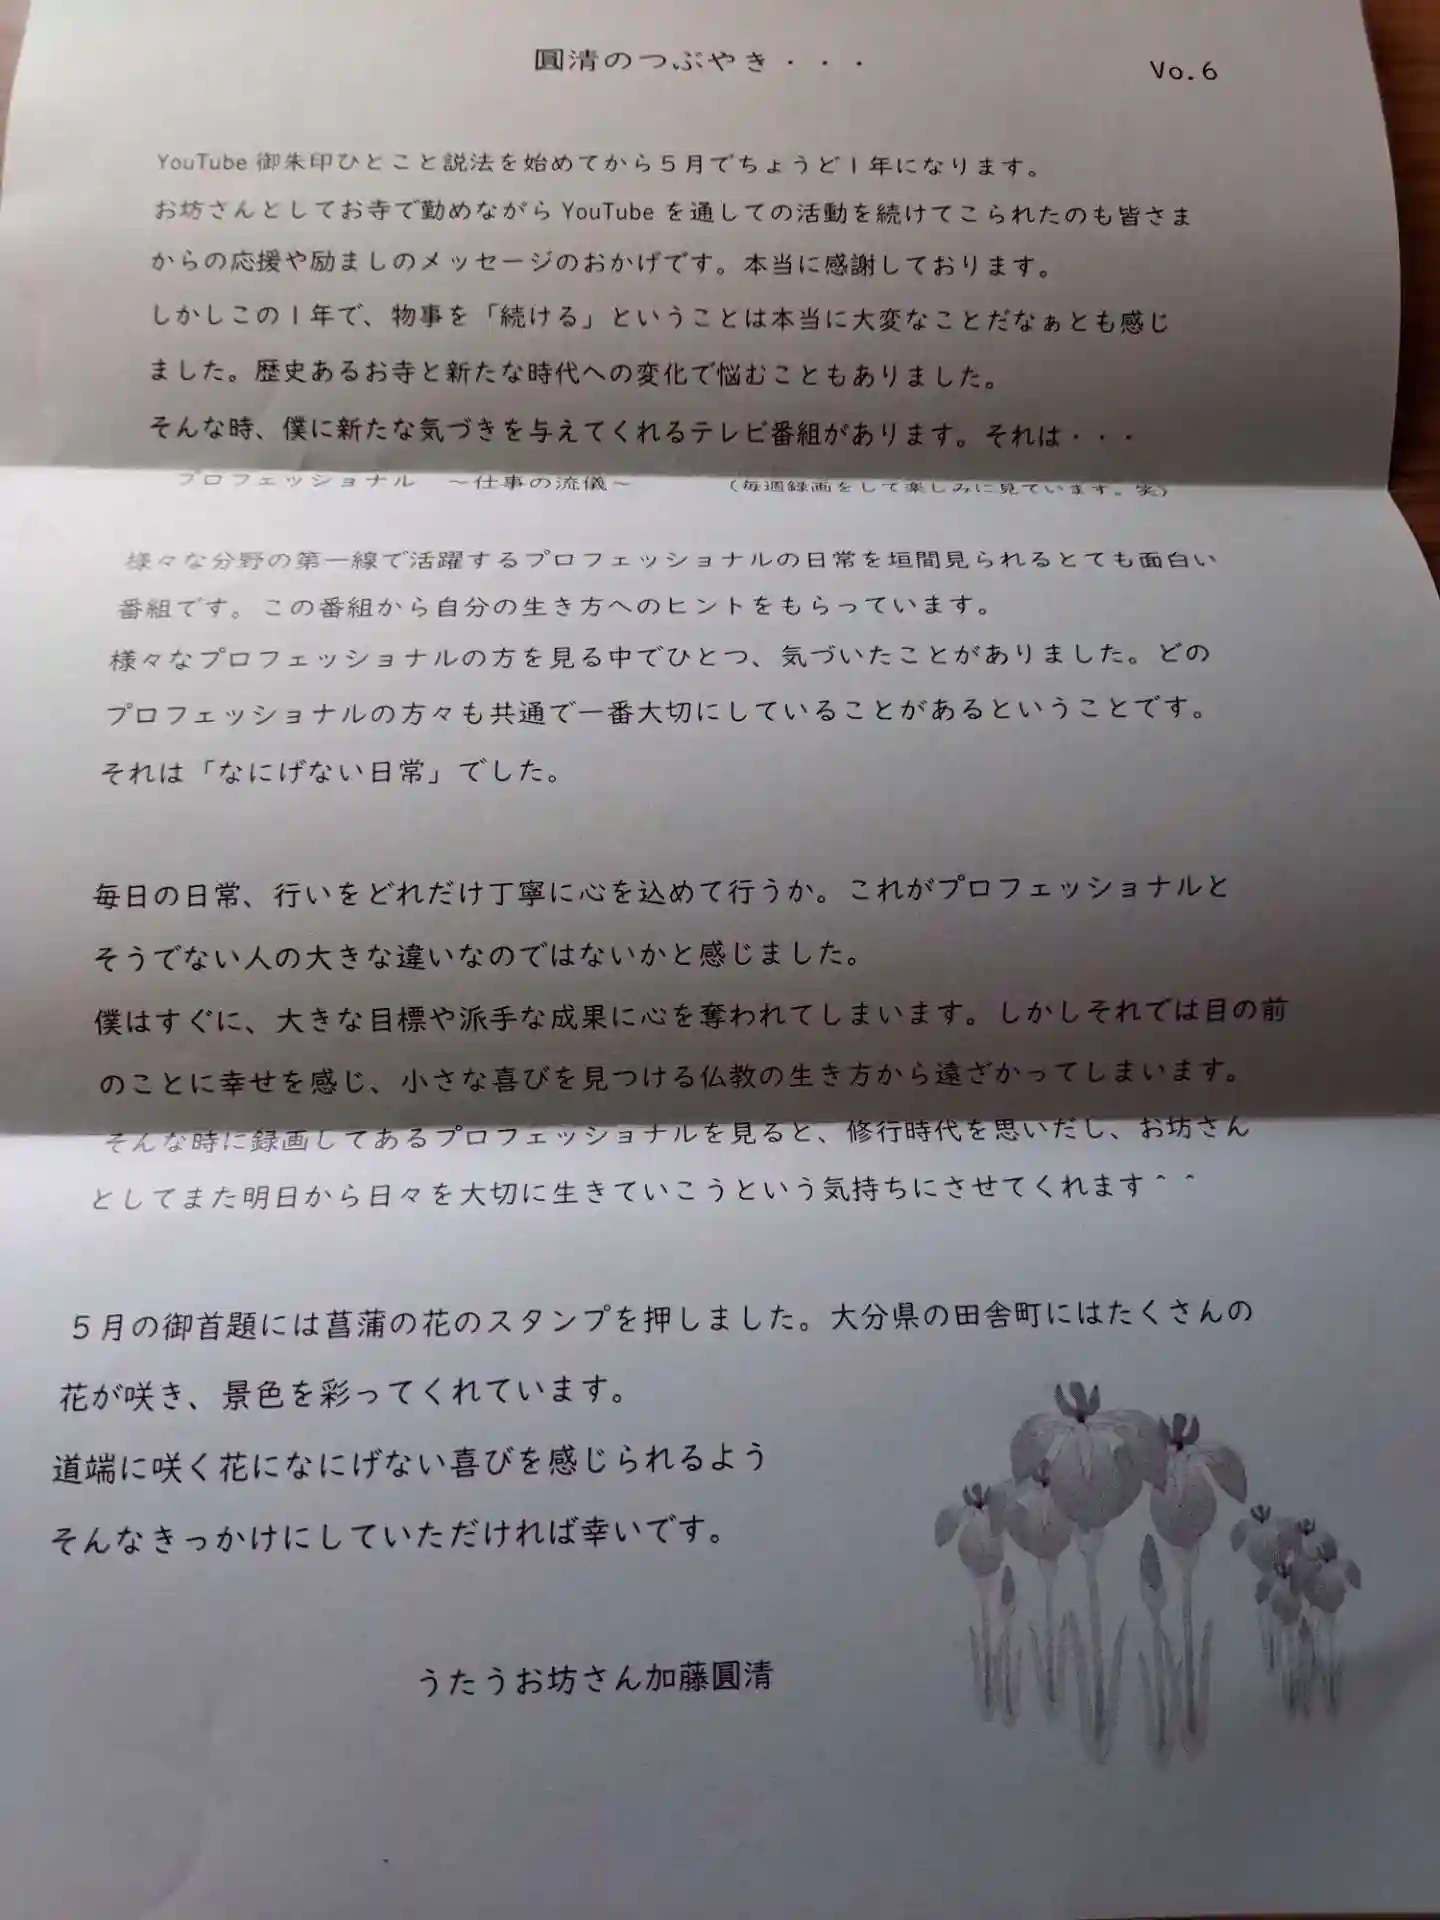 圓清のつぶやき・・・
Vo.6
YouTube 御朱印ひとこと説法を始めてから５月でちょうど１年になります。
お坊さんとしてお寺で勤めながら YouTube を通しての活動を続けてこられたのも皆さま
からの応援や励ましのメッセージのおかげです。本当に感謝しております。
しかしこの１年で、物事を「続ける」ということは本当に大変なことだなぁとも感じ
ました。歴史あるお寺と新たな時代への変化で悩むこともありました。
そんな時、僕に新たな気づきを与えてくれるテレビ番組があります。それは・・・
プロフェッショナル　～仕事の流儀～　（毎週録画をして楽しみに見ています。笑）
様々な分野の第一線で活躍するプロフェッショナルの日常を垣間見られるとても面白い
番組です。この番組から自分の生き方へのヒントをもらっています。
様々なプロフェッショナルの方を見る中でひとつ、気づいたことがありました。どの
プロフェッショナルの方々も共通で一番大切にしていることがあるということです。
それは「なにげない日常」でした。
毎日の日常、行いをどれだけ丁寧に心を込めて行うか。これがプロフェッショナルと
そうでない人の大きな違いなのではないかと感じました。
僕はすぐに、大きな目標や派手な成果に心を奪われてしまいます。しかしそれでは目の前
のことに幸せを感じ、小さな喜びを見つける仏教の生き方から遠ざかってしまいます。
そんな時に録画してあるプロフェッショナルを見ると、修行時代を思いだし、お坊さん
としてまた明日から日々を大切に生きていこうという気持ちにさせてくれます＾＾
５月の御首題には菖蒲の花のスタンプを押しました。大分県の田舎町にはたくさんの
花が咲き、景色を彩ってくれています。
道端に咲く花になにげない喜びを感じられるよう
そんなきっかけにしていただければ幸いです。
うたうお坊さん加藤圓清